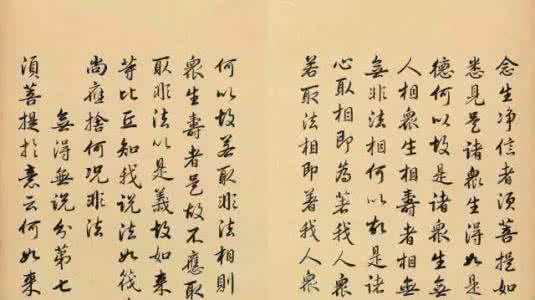 念生净信者須菩提如
悉見是諸衆生得如是
德何以故是諸衆生無
人相衆生相壽者相無
無非法相何以故是諸
心取相即為著我人衆
若取法相即著我人衆
何以故若取非法相則
衆生壽者是故不應取
取非法以是義故如來
等比丘知我説法如筏
尚應捨何況非法
無得無説分第七
須菩提於意云何如來